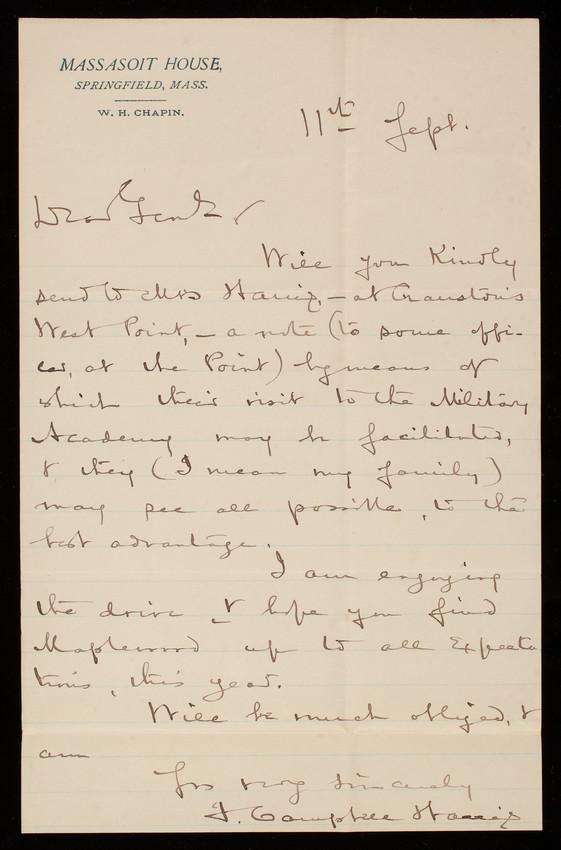 MASSASOIT HOUSE,
SPRINGFIELD, MASS.
W. H. CHAPIN.
11th Sept.
Dear
Will you Kindly
send to Mrs Harris, – at Cranston's
West Point, – a note (to some offi-
cer, at the Point) by means of
which their visit to the Military
Academy may be facilitated,
& they (I mean my family)
may see all possible, to the
best advantage.
I am enjoying
the drive & hope you find
Maplewood up to all Expecta
tions, this year.
Will be much obliged, &
am
Yrs very sincerely
J. Campbell Harris